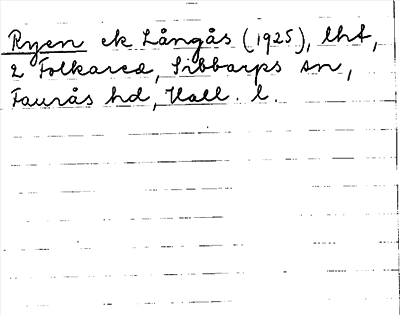 Ryen ek Långås (1925), lht,
2 Folkared, Sibbarps sn,
Faurås hd, Hall. l.